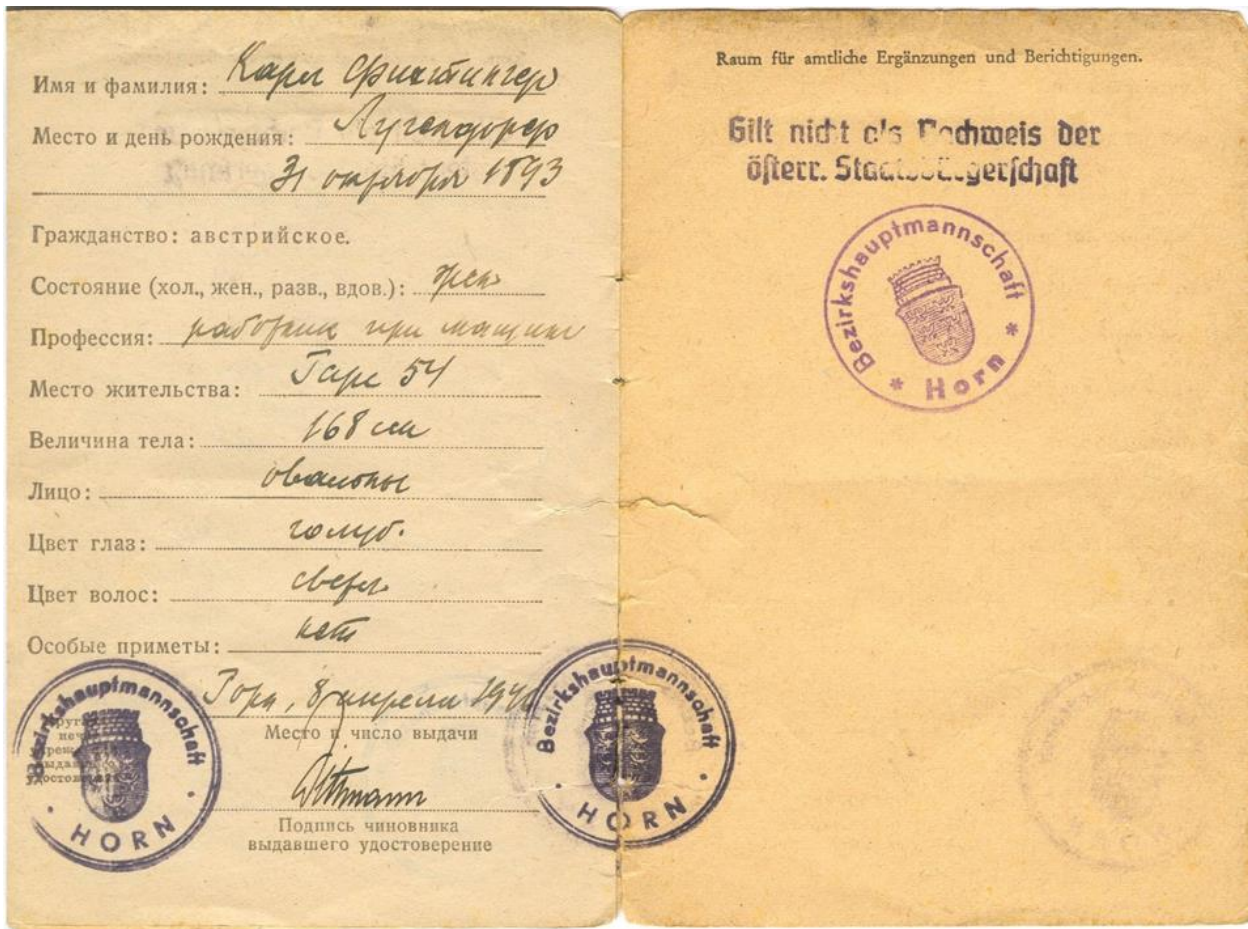 Имя и фамилия: Карл Фихтингер
Место и день рождения: Лугендорф
31 октября 1893
Гражданство: австрийское.
Состояние (хол., жен., разв., вдов.): жен
Профессия: работник при машине
Место жительства: Гарс 54
Величина тела: 168 см
Лицо: овальны
Цвет глаз: голуб.
Цвет волос: светл
Особые приметы: нет
Горн, 8 апреля 1946
Место и число выдачи
Dittmann
Подпись чиновника
выдавшего удостоверение
Bezirkshauptmannschaft
HORN
Bezirkshauptmannschaft
HORN
Raum für amtliche Ergänzungen und Berichtigungen.
Gilt nicht als Nachweis der
österr. Staatsbürgerschaft
Bezirkshauptmannschaft
* Horn *